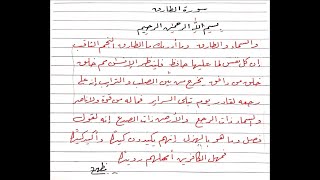 سورة الطارق
بسم الله الرحمن الرحيم
والسماء والطارق وما أدريك ما الطارق النجم الثاقب
إن كل نفس لما عليها حافظ فلينظر الإنسٰن مم خلق
خلق من ماء دافق يخرج من بين الصلب والترائب إنه على
رجعه لقادر يوم تبلى السرائر فما له من قوة ولا ناصر
والسماء ذات الرجع والأرض ذات الصدع إنه لقول
فصل وما هو بالهزل إنهم يكيدون كيدًا وأكيد كيدًا
فمهل الكافرين أمهلهم رويدًا